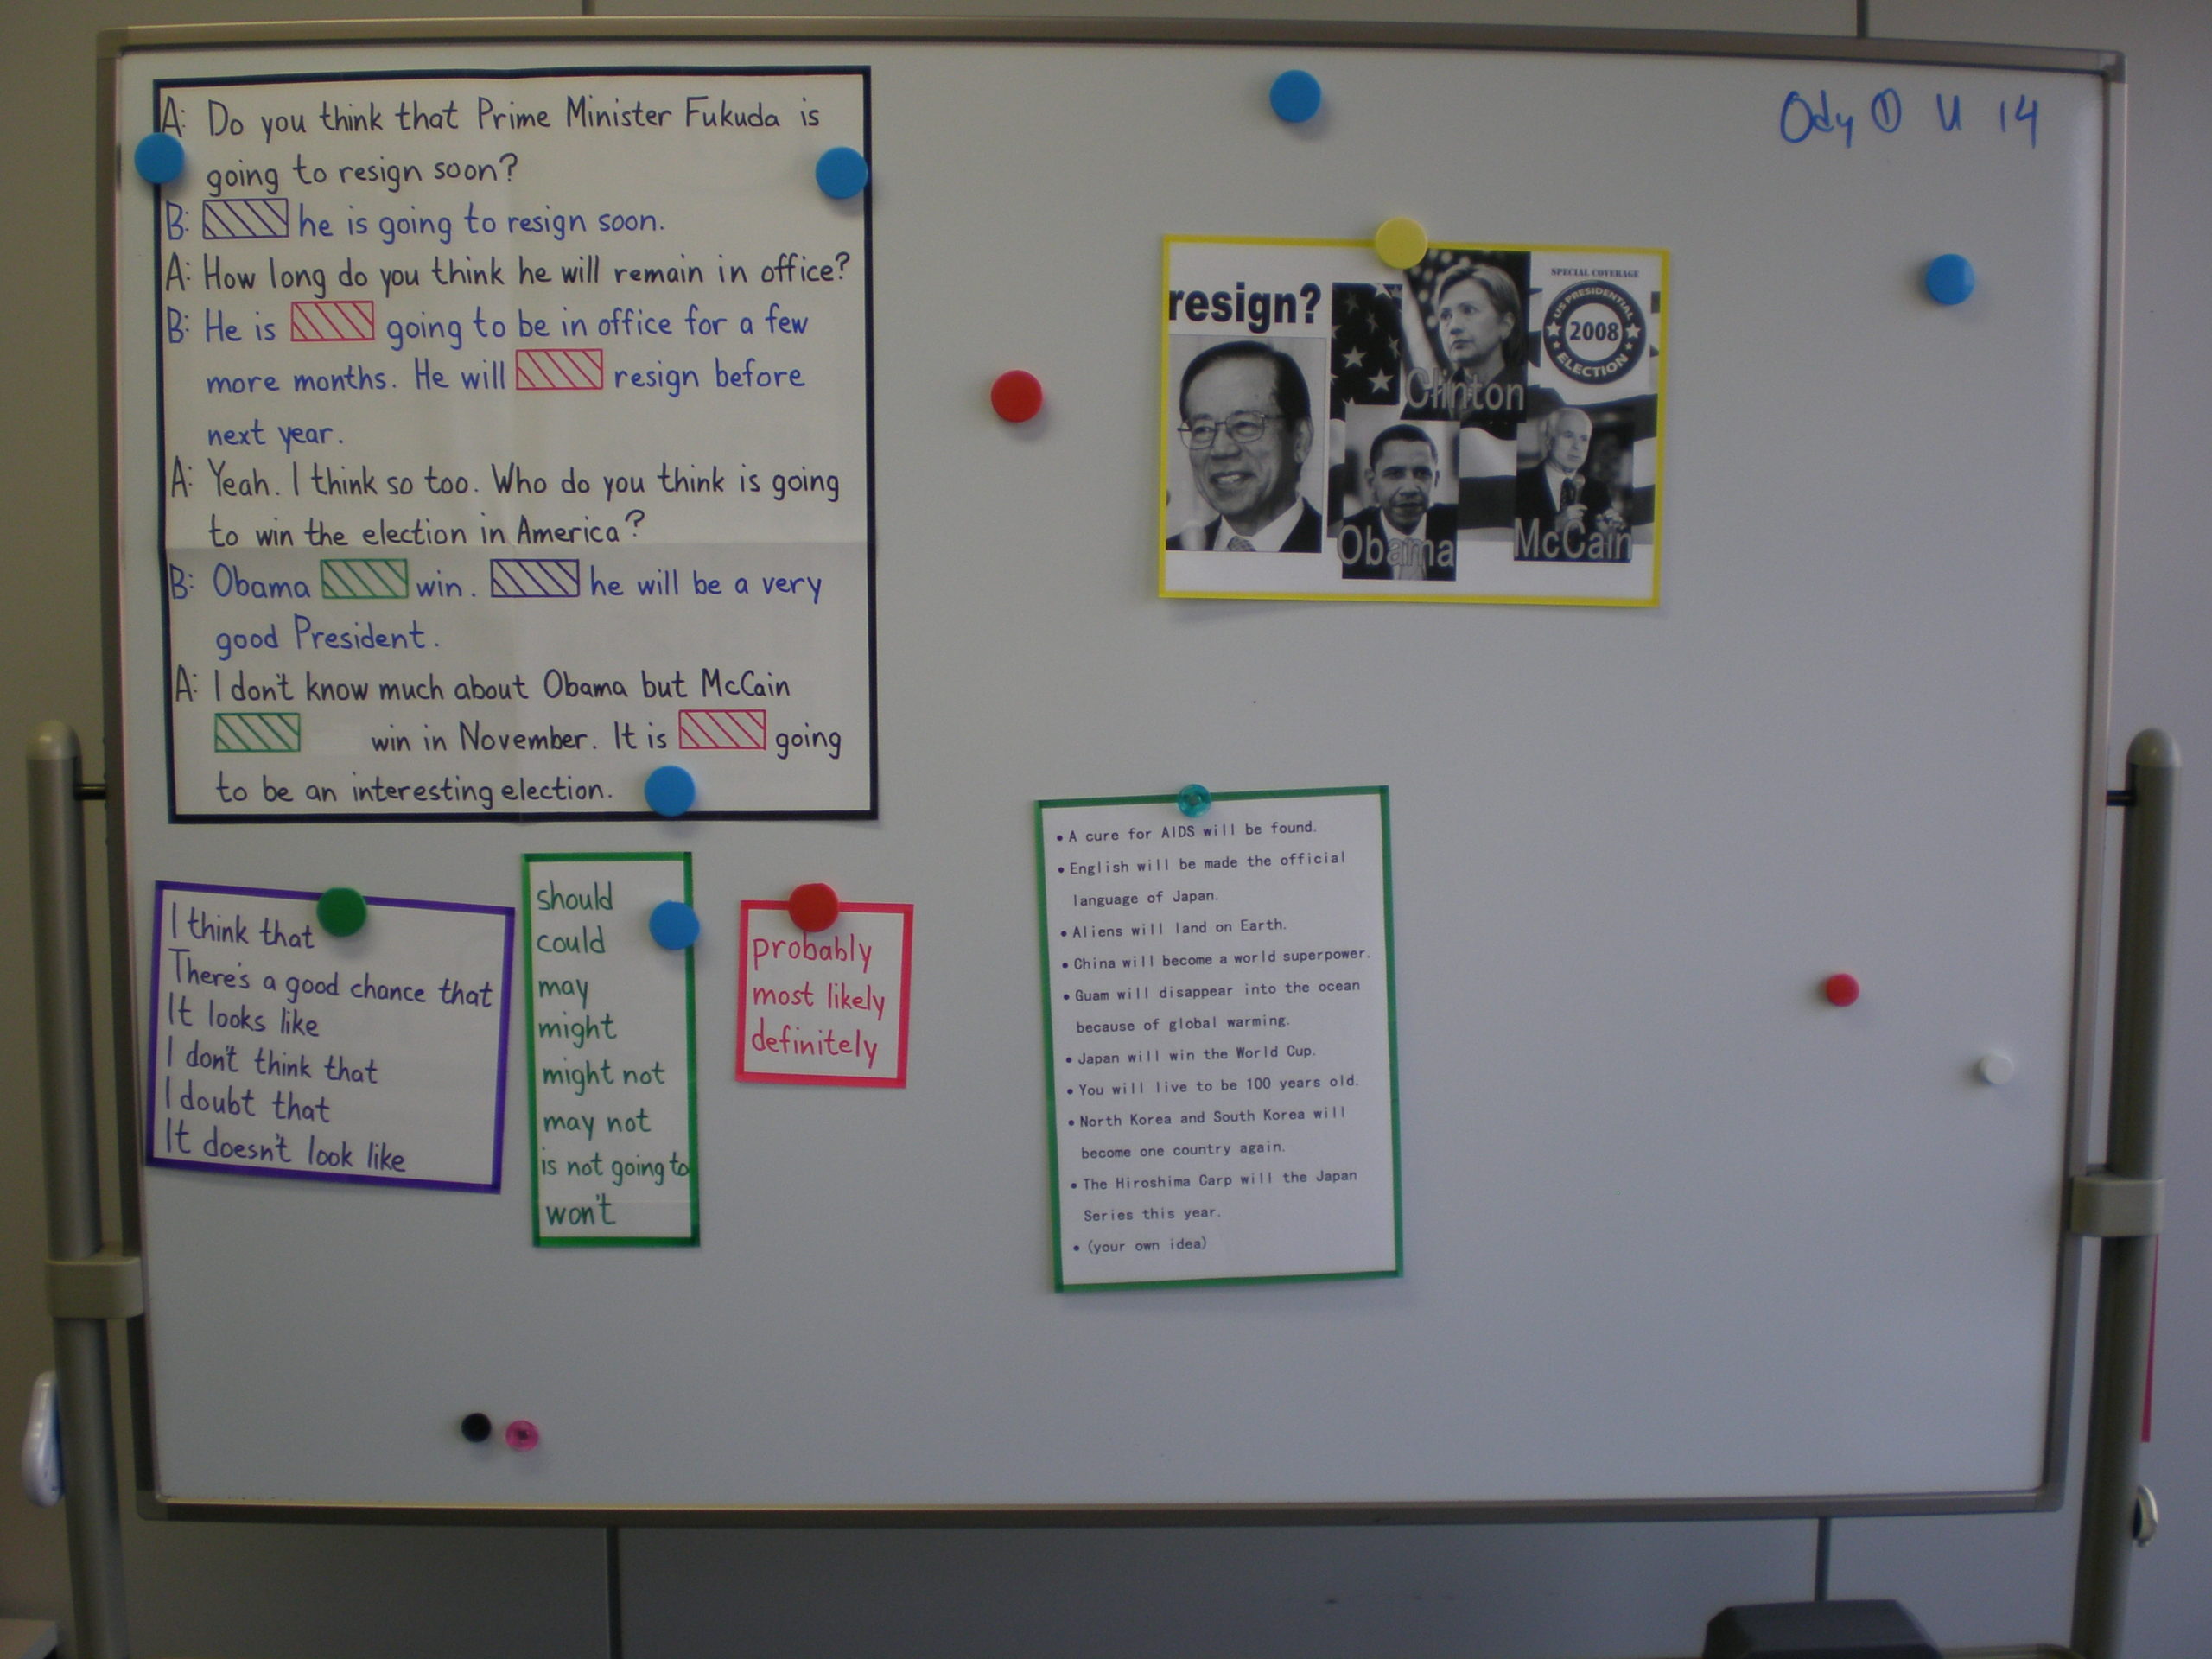 A: Do you think that Prime Minister Fukuda is
going to resign soon?
B: he is going to resign soon.
A: How long do you think he will remain in office?
B: He is going to be in office for a few
more months. He will resign before
next year.
A: Yeah. I think so too. Who do you think is going
to win the election in America?
B: Obama win. he will be a very
good President.
A: I don't know much about Obama but McCain
win in November. It is going
to be an interesting election.
I think that
There's a good chance that
It looks like
I don't think that
I doubt that
It doesn't look like
should
could
may
might
might not
may not
is not going to
won't
probably
most likely
definitely
Ody ① U 14
resign?
Clinton
SPECIAL COVERAGE
US PRESIDENTIAL
2008
ELECTION
Obama
McCain
• A cure for AIDS will be found.
• English will be made the official
language of Japan.
• Aliens will land on Earth.
• China will become a world superpower.
• Guam will disappear into the ocean
because of global warming.
• Japan will win the World Cup.
• You will live to be 100 years old.
• North Korea and South Korea will
become one country again.
• The Hiroshima Carp will the Japan
Series this year.
• (your own idea)